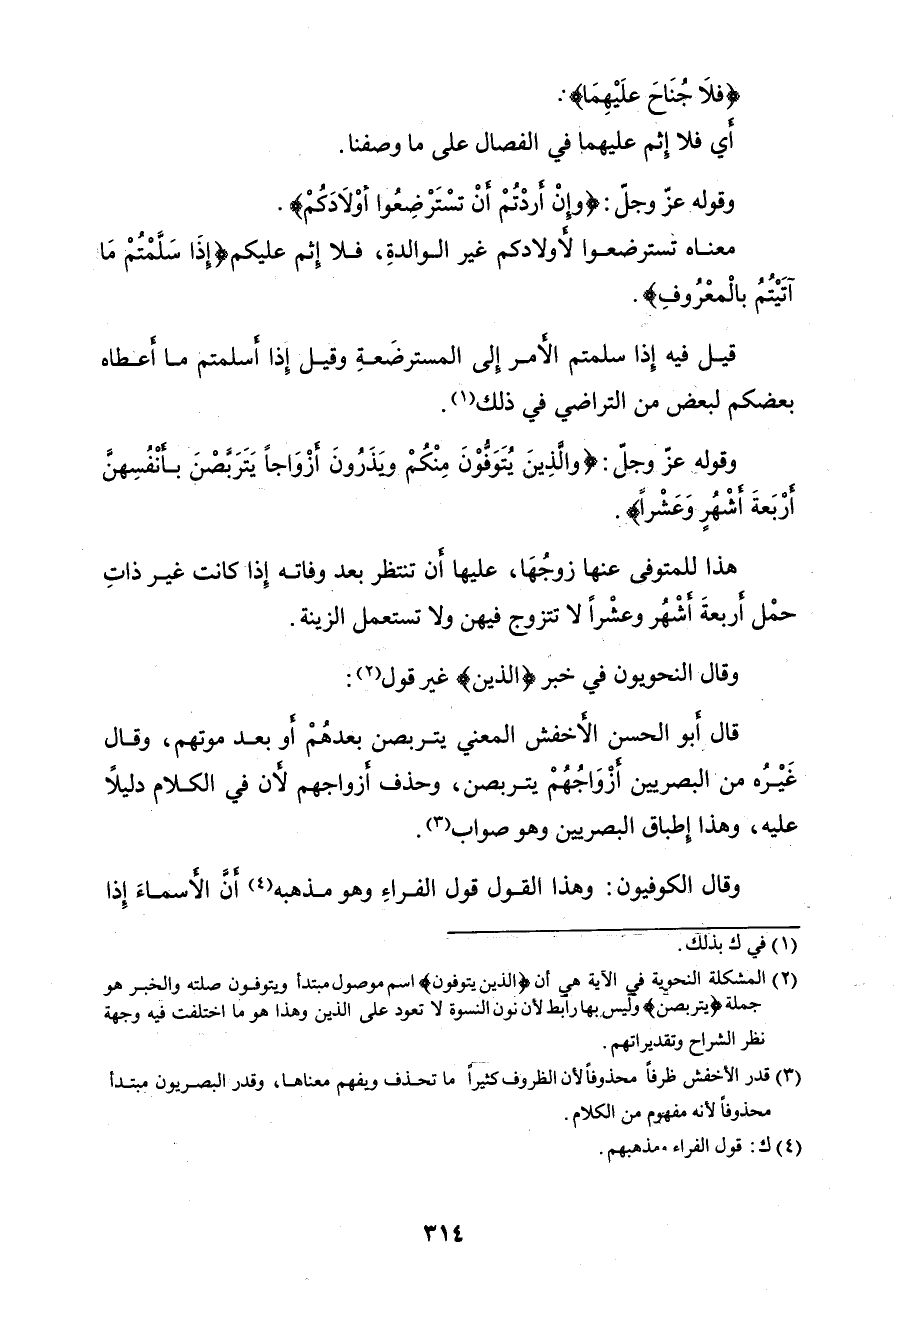 ﴿فلَا جُنَاحَ علَيْهِمَا﴾:
أَي فلا إِثم عليهما في الفصال على ما وصفنا.
وقوله عزّ وجلّ: ﴿وإِنْ أَردْتُمْ أَنْ تسْتَرْضِعُوا أَوْلَادَكُمْ﴾.
معنـاه تَسترضعـوا لأَولادكم غير الـوالدةِ، فـلا إِثم عليكم﴿إِذَا سَلَّمْتُمْ مَا
آتَيْتُمْ بالْمعْرُوفِ﴾.
قيـل فيه إِذا سلمتم الأَمـر إِلى المسترضَعـةِ وقيـل إِذا أَسلمتم مـا أَعـطاه
بعضكم لبعض من التراضي في ذلك(١).
وقوله عزّ وجلّ: ﴿والَّذِينَ يُتَوَفَّوْنَ مِنْكُمْ ويَذَرُونَ أَزْوَاجاً يَتَربَّصْنَ بـأَنْفُسِهنَّ
أَرْبَعةَ أَشْهُرٍ وَعَشْراً﴾.
هذا للمتوفى عنها زوجُهَا، عليها أَن تنتظر بعد وفاتـه إِذا كانت غيـر ذاتِ
حمْل أَربعةَ أَشْهُر وعشْراً لا تتزوج فيهن ولا تستعمل الزينة.
وقال النحويون في خبر ﴿الذين﴾ غير قول(٢):
قال أَبو الحسن الأَخفش المعني يتـربصن بعدهُمْ أَو بعـد موتهم، وقـال
غَيْـرُه من البصريين أَزْوَاجُهُمْ يتـربصن، وحذف أَزواجهم لأَن في الكـلام دليلًا
عليه، وهذا إِطباق البصريين وهو صواب(٣).
وقال الكوفيون: وهذا القـول قول الفـراءِ وهو مـذهبه(٤) أَنَّ الأَسمـاءَ إِذا
(١) في ك بذلك.
(٢) المشكلة النحوية في الآية هي أن ﴿الذين يتوفون﴾ اسم موصول مبتدأ ويتوفـون صلته والخبـر هو
جملة ﴿يتربصن﴾ وليس بها رابط لأن نون النسوة لا تعود على الذين وهذا هو ما اختلفت فيه وجهة
نظر الشراح وتقديراتهم.
(٣) قدر الأخفش ظرفاً محذوفاً لأن الظروف كثيراً ما تحـذف ويفهم معناهـا، وقدر البصـريون مبتـدأ
محذوفاً لأنه مفهوم من الكلام.
(٤) ك: قول الفراء ومذهبهم.
٣١٤